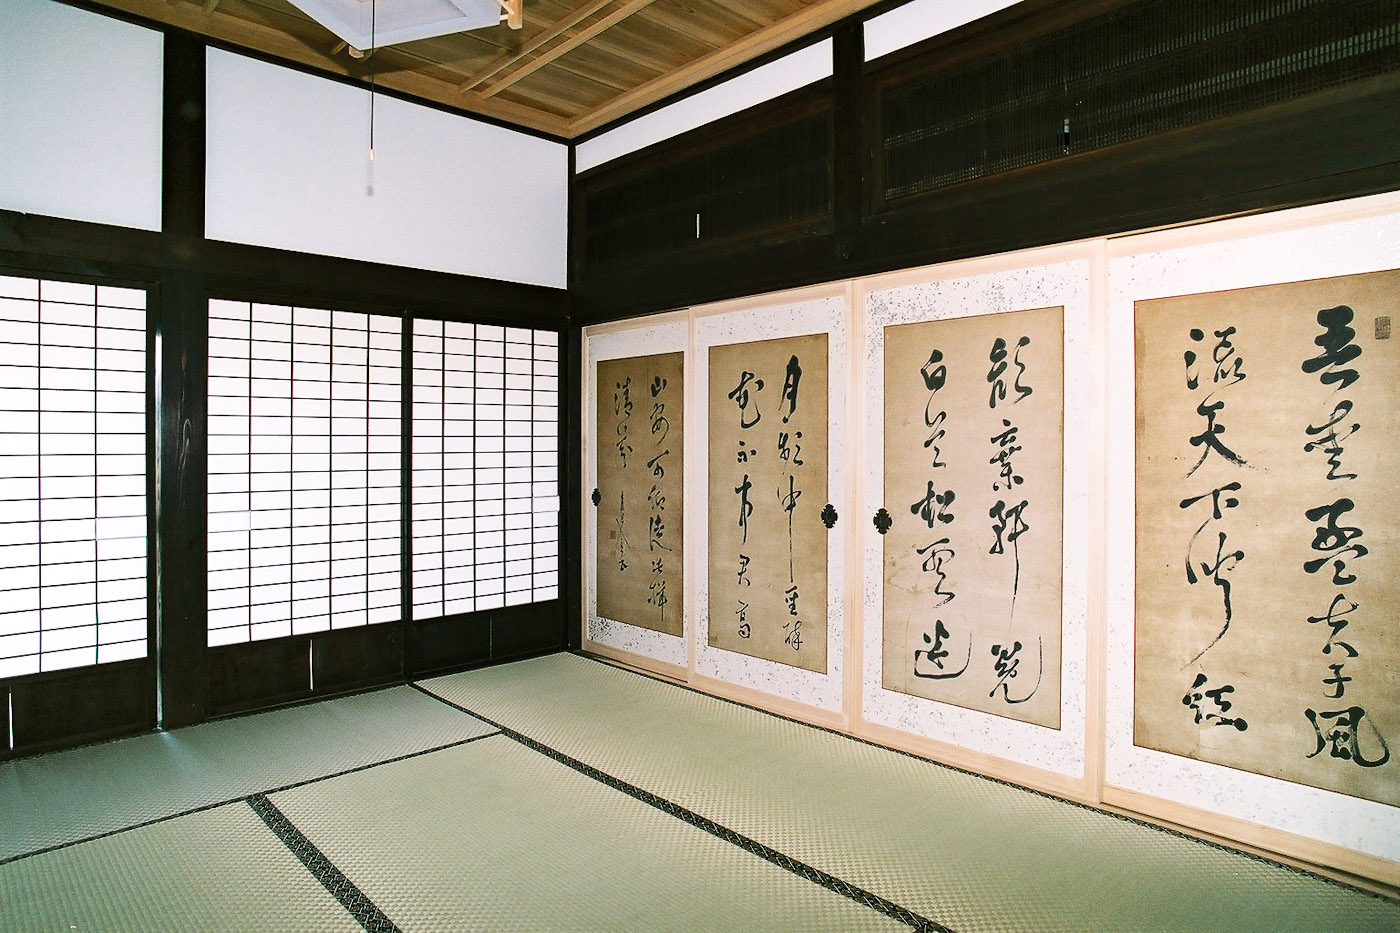 吾愛孟夫子風
流天下聞紅
顔棄軒冕
白首松雲迷
月頻中聖醉
花不事君高
山安可仰徒此揖
清芬